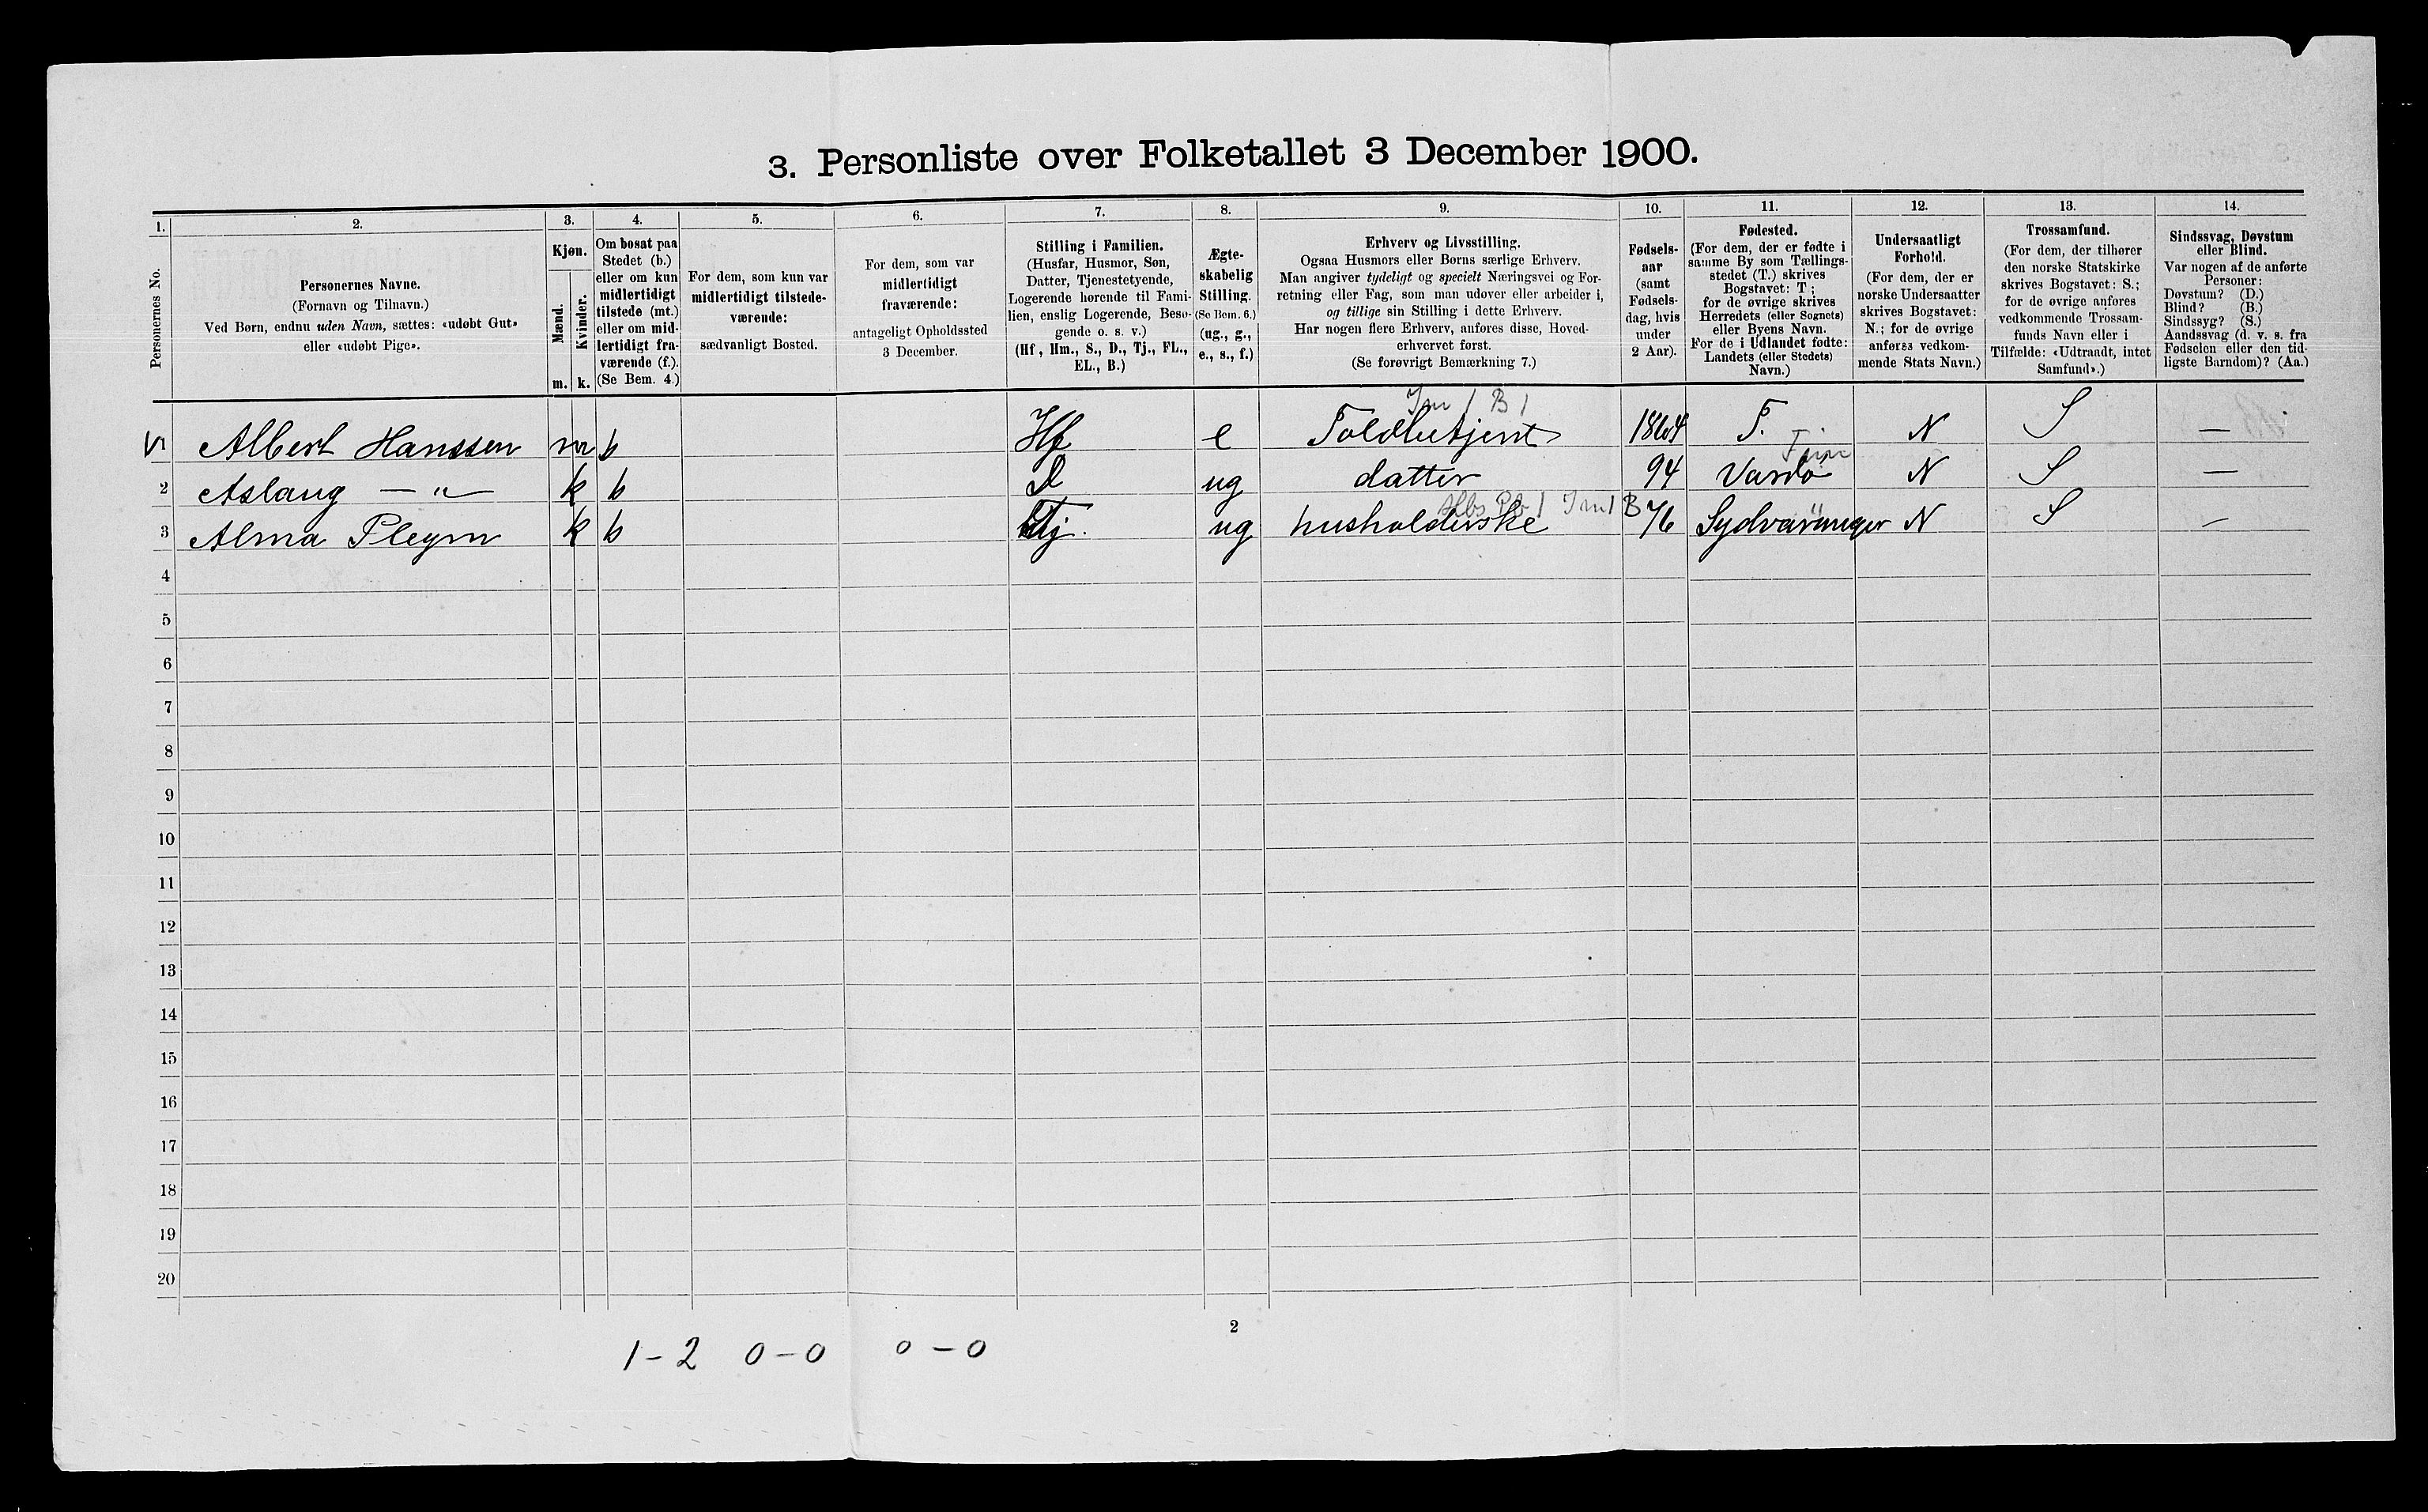 3. Personliste over Folketallet 3 December 1900.
1. 2. 3. 4. 5. 6. 7. 8. 9. 10. 11. 12. 13. 14.
Personernes No.
Personernes Navne.
(Fornavn og Tilnavn.)
Ved Børn, endnu uden Navn, sættes: «udøbt Gut»
eller «udøbt Pige».
Kjøn.
Mænd.
Kvinder.
m. k.
Om bosat paa
Stedet (b.)
eller om kun
midlertidigt
tilstede (mt.)
eller om mid-
lertidigt fra-
værende (f.).
(Se Bem. 4.)
For dem, som kun var
midlertidigt tilstede-
værende:
sædvanligt Bosted.
For dem, som var
midlertidigt
fraværende:
antageligt Opholdssted
3 December.
Stilling i Familien.
(Husfar, Husmor, Søn,
Datter, Tjenestetyende,
Logerende hørende til Fami-
lien, enslig Logerende, Besø-
gende o. s. v.)
(Hf, Hm., S., D., Tj., FL.,
EL., B.)
Ægte-
skabelig
Stilling.
(Se Bem. 6.)
(ug., g.,
e., s., f.)
Erhverv og Livsstilling.
Ogsaa Husmors eller Børns særlige Erhverv.
Man angiver tydeligt og specielt Næringsvei og For-
retning eller Fag, som man udøver eller arbeider i,
og tillige sin Stilling i dette Erhverv.
Har nogen flere Erhverv, anføres disse, Hoved-
erhvervet først.
(Se forøvrigt Bemærkning 7.)
Fødsels-
aar
(samt
Fødsels-
dag, hvis
under
2 Aar).
Fødested.
(For dem, der er fødte i
samme By som Tællings-
stedet (T.) skrives
Bogstavet: T;
for de øvrige skrives
Herredets (eller Sognets)
eller Byens Navn.
For de i Udlandet fødte:
Landets (eller Stedets)
Navn.)
Undersaatligt
Forhold.
(For dem, der er
norske Undersaatter
skrives Bogstavet:
N.; for de øvrige
anføres vedkom-
mende Stats Navn.)
Trossamfund.
(For dem, der tilhører
den norske Statskirke
skrives Bogstavet: S.;
for de øvrige anføres
vedkommende Trossam-
funds Navn eller i
Tilfælde: «Udtraadt, intet
Samfund».)
Sindssvag, Døvstum
eller Blind.
Var nogen af de anførte
Personer:
Døvstum? (D.)
Blind? (B.)
Sindssyg? (S.)
Aandssvag (d. v. s. fra
Fødselen eller den tid-
ligste Barndom)? (Aa.)
Albert Hanssen m b Hf e Toldbetjent 1864 T. N S —
2 Aslaug — " — k b D ug datter 94 Vardø N S —
3 Alma Pleym k b Tj. ug husholderske 76 Sydvaranger N S —
4
5
6
7
8
9
10
11
12
13
14
15
16
17
18
19
20
2
1 - 2 0 - 0 0 - 0